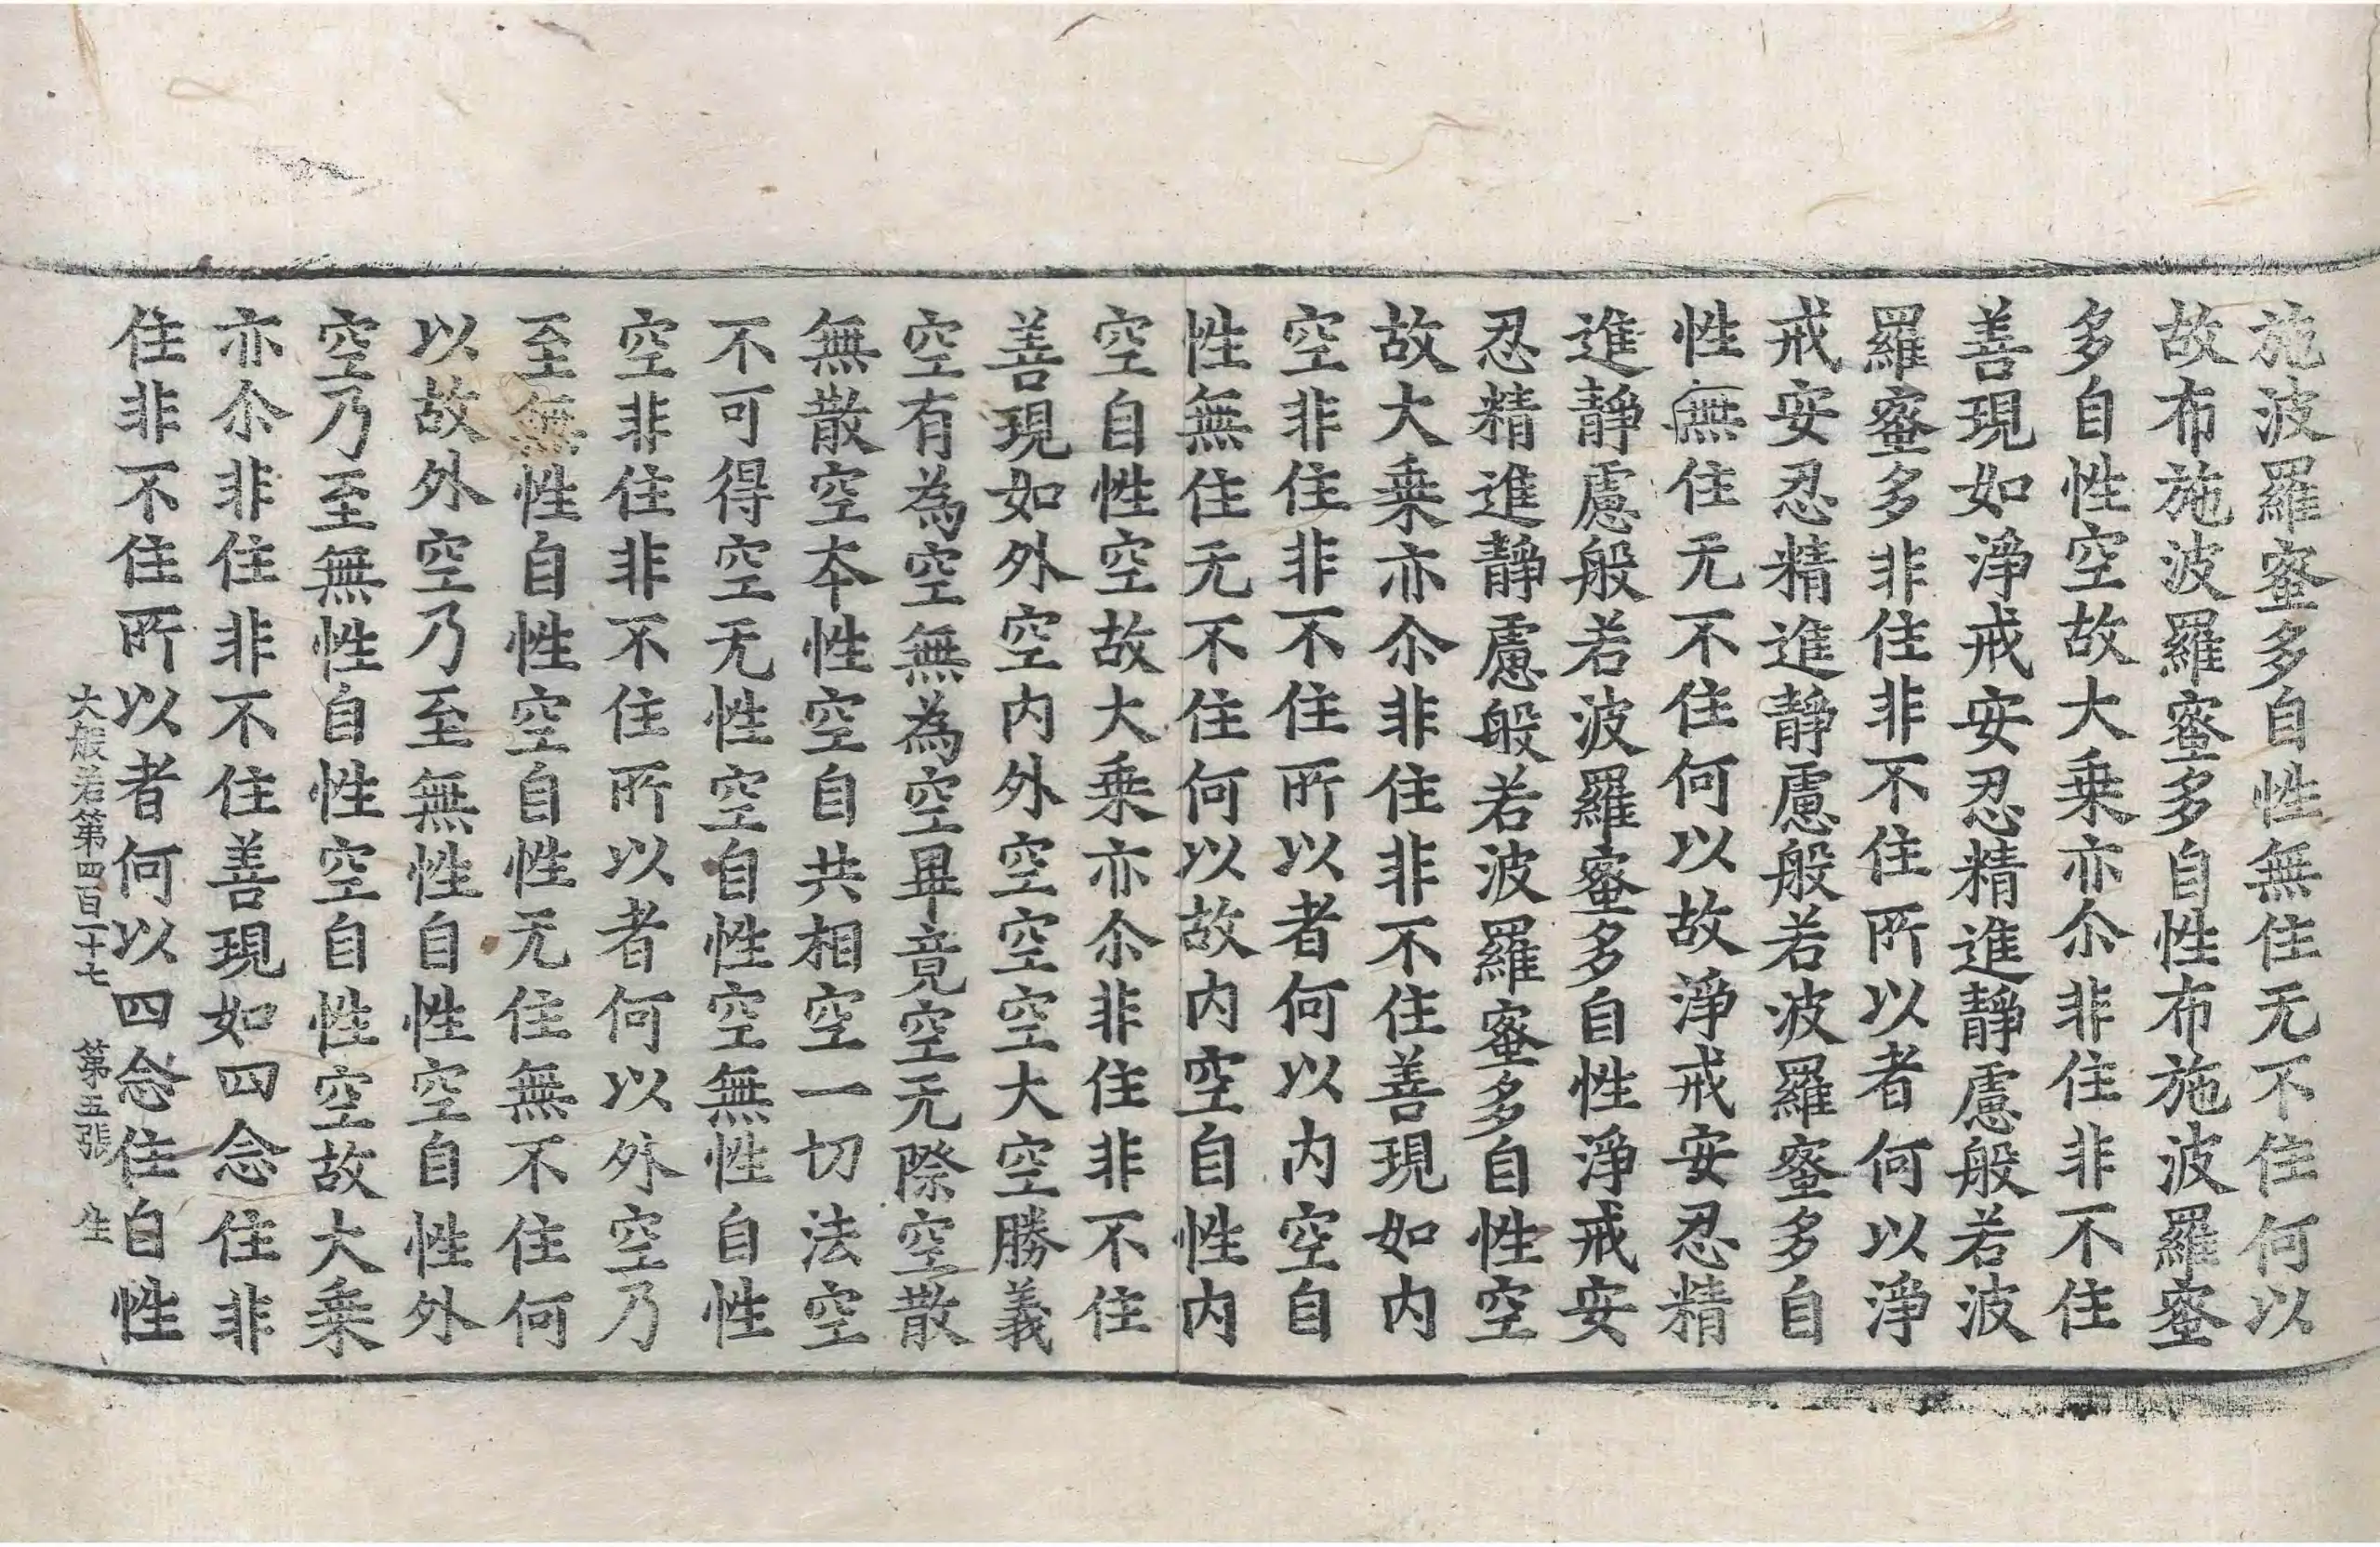 施波羅蜜多自性無住无不住何以
故布施波羅蜜多自性布施波羅蜜
多自性空故大乗亦尒非住非不住
善現如淨戒安忍精進靜慮般若波
羅蜜多非住非不住所以者何以淨
戒安忍精進靜慮般若波羅蜜多自
性無住无不住何以故淨戒安忍精
進靜慮般若波羅蜜多自性淨戒安
忍精進靜慮般若波羅蜜多自性空
故大乗亦尒非住非不住善現如内
空非住非不住所以者何以内空自
性無住无不住何以故内空自性内
空自性空故大乗亦尒非住非不住
善現如外空内外空空空大空勝義
空有為空無為空畢竟空无際空散
無散空夲性空自共相空一切法空
不可得空无性空自性空無性自性
空非住非不住所以者何以外空乃
至無性自性空自性无住無不住何
以故外空乃至無性自性空自性外
空乃至無性自性空自性空故大乗
亦尒非住非不住善現如四念住非
住非不住所以者何以四念住自性
大般若第四百一十七 第五張 生